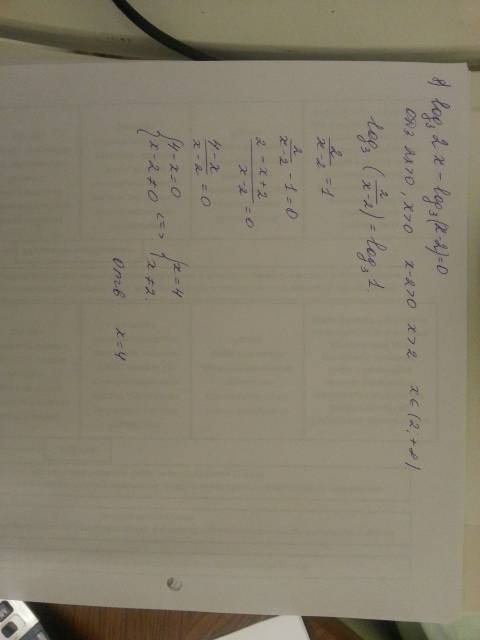 8) log₃ 2x - log₃(x-2)=0
ОДЗ 2x>0, x>0 x-2>0 x>2 x∈(2,+∞)
log₃ (2/(x-2)) = log₃ 1.
2/(x-2) = 1
2/(x-2) - 1 = 0
(2-x+2)/(x-2) = 0
(4-x)/(x-2) = 0
{4-x=0 <=> {x=4
{x-2≠0 {x≠2.
Отв x=4